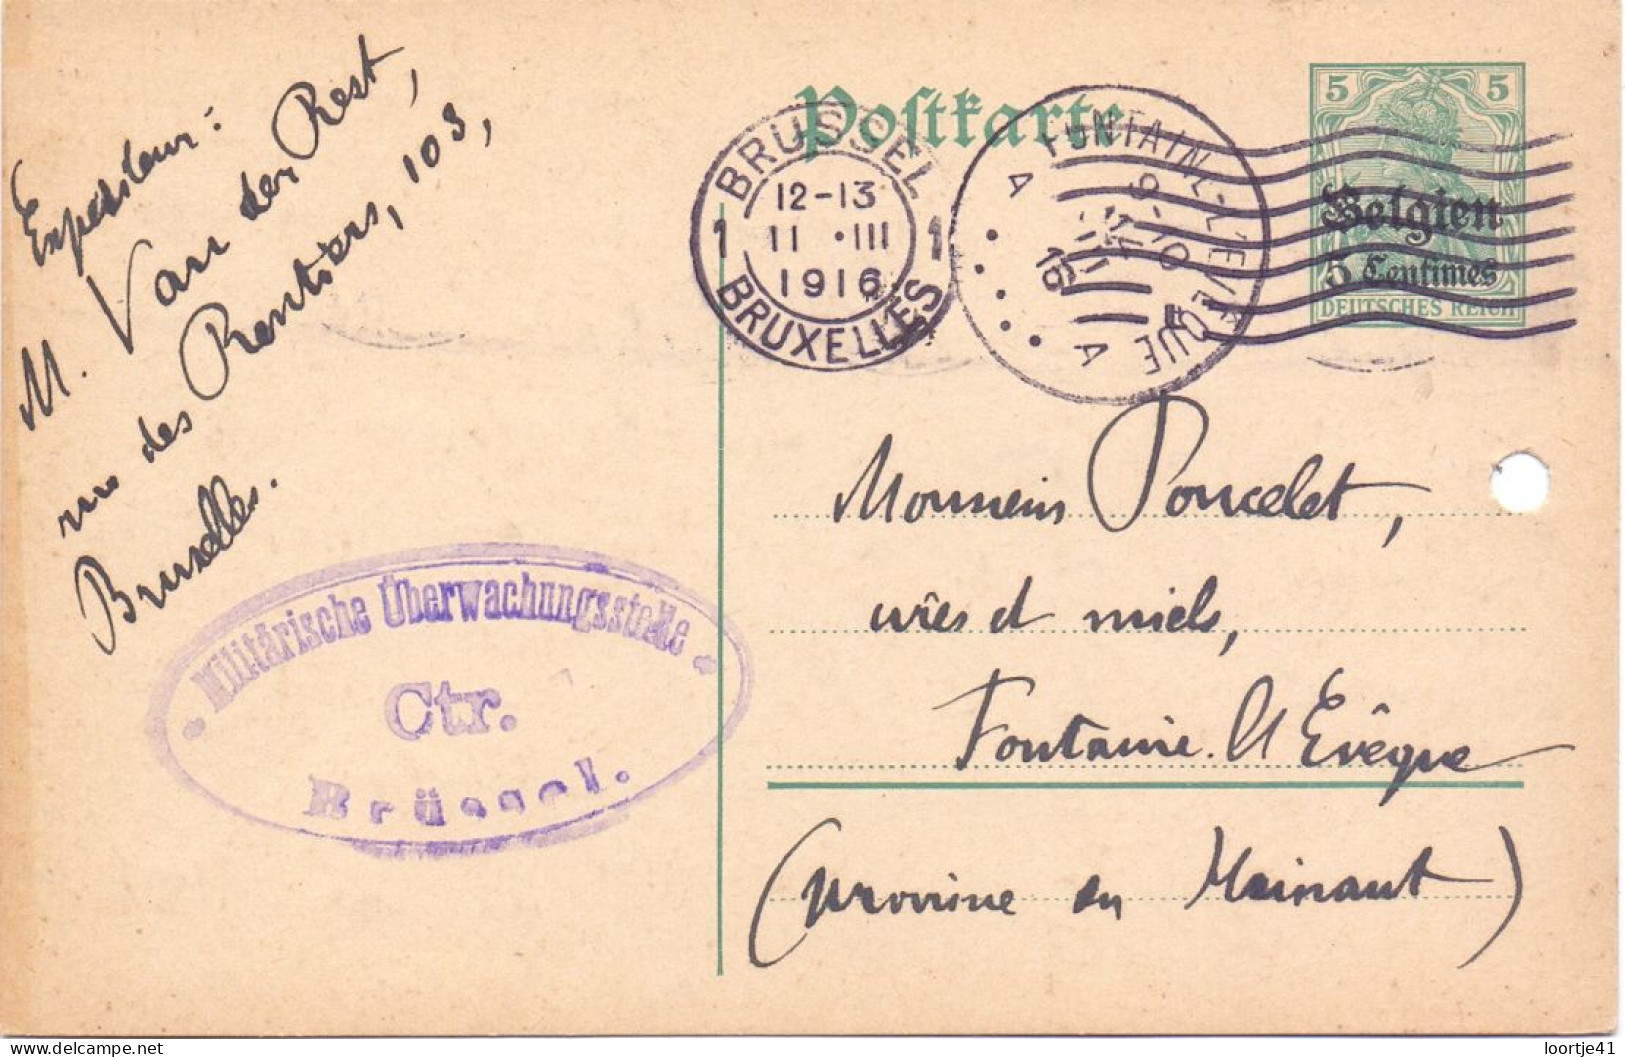 Expéditeur :
M. Van der Rest,
rue des Rentiers, 103,
Bruxelles.
Postkarte
BRUSSEL
1 12-13 1
11 • III
1916
BRUXELLES
FONTAIN-L'EVEQUE
9-10
16
A A
5 5
Belgien
5 Centimes
DEUTSCHES REICH
Monsieur Poncelet,
cires et miels,
Fontaine l'Evêque
(province du Hainaut)
Militärische Überwachungsstelle
Ctr.
Brüssel.
loortje41